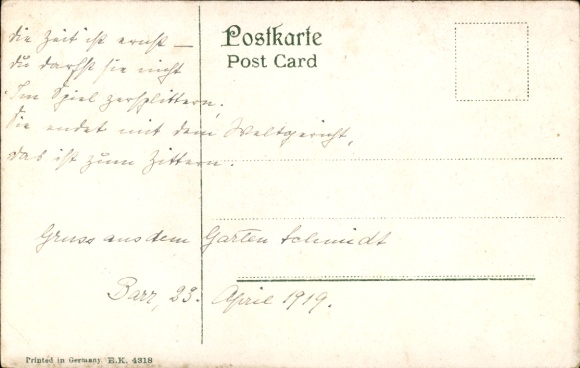 die Zeit ist ernst —
du darfst sie nicht
Im Spiel zersplittern,
Sie endet mit dem Weltgericht,
das ist zum Zittern.
Gruss aus dem Garten Schmidt
Barr, 23. April 1919.
Postkarte
Post Card
Printed in Germany. E.K. 4318